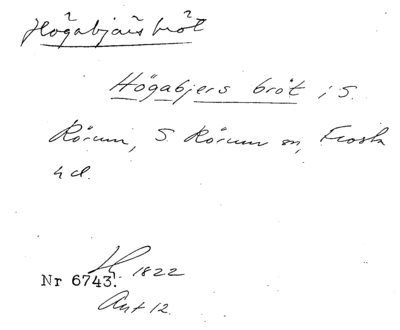 Högabjärs bröt
Högabjers bröt i S.
Rörum, S. Rörum sn, Frosta
hd.
1822
Nr 6743.
Ant 12.